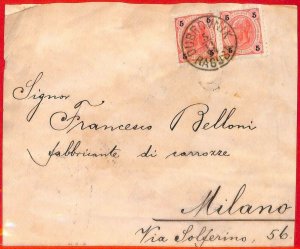 5 5 5 5
DUBROVNIK
RAGUSA
Signor
Francesco Belloni
fabbricante di carrozze
Milano
Via Solferino, 56.